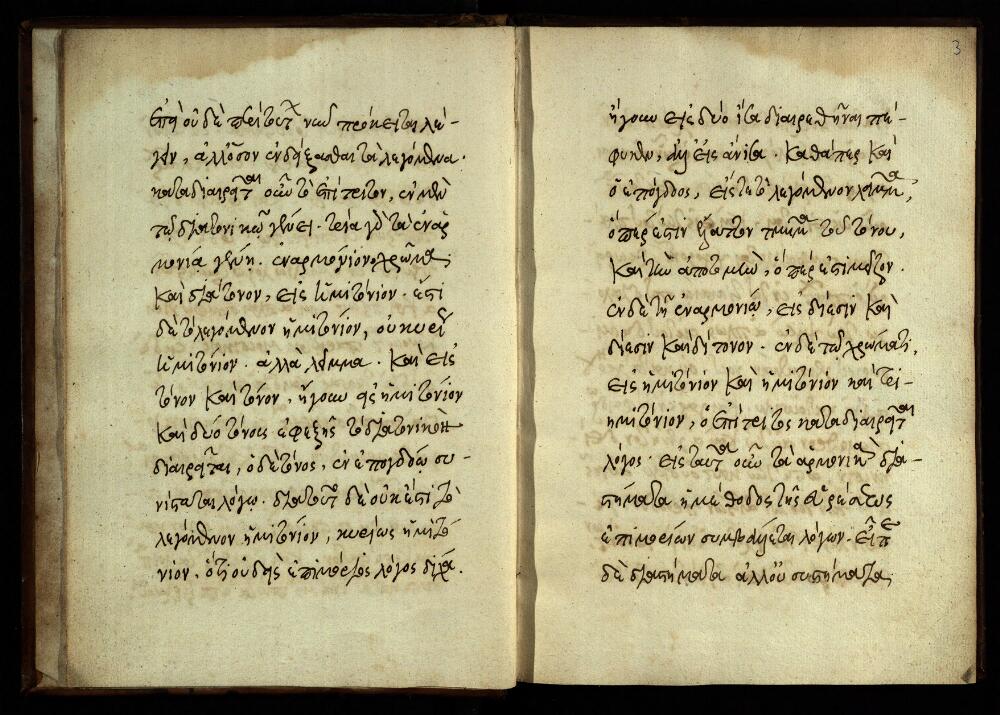 ἐπεὶ οὐδὲ περὶ τούτων νῦν πρόκειται λέ-
γειν, ἀλλ' ὅσον ἐνδείξασθαι τὰ λεγόμενα.
καταδιαιρεῖται οὖν τὸ ἐπίτριτον, ἐν μὲν
τῷ διατονικῷ γένει. τρία γὰρ τὰ ἐναρ
μονία γένη. ἐναρμόνιον χρῶμα,
καὶ διάτονον, εἰς ἡμιτόνιον. ἐπεὶ
δὲ τὸ λεγόμενον ἡμιτόνιον, οὐ κυρεῖ
ἡμιτόνιον. ἀλλὰ λεῖμμα. καὶ εἰς
τόνον καὶ τόνον, ἤγουν εἰς ἡμιτόνιον
καὶ δύο τόνους ἐφεξῆς τὸ διατονικὸν
διαιρεῖται, ὁ δὲ τόνος, ἐν ἐπογδόῳ συ-
νίσταται λόγῳ. διὰ τοῦτο δὲ οὐκ ἔστι τὸ
λεγόμενον ἡμιτόνιον, κυρίως ἡμιτό
νιον, ὅτι οὐδεὶς ἐπιμόριος λόγος δίχα.
3
ἤγουν εἰς δύο ἴσα διαιρεθῆναι πέ-
φυκεν, ἀλλ' εἰς ἄνισα. καθάπερ καὶ
ὁ ἐπόγδοος, εἴς τε τὸ λεγόμενον λεῖμμα,
ὅπερ ἐστὶν ἔλαττον τμῆμα τοῦ τόνου,
καὶ τὴν ἀποτομὴν, ὅπερ ἐστὶ μεῖζον.
ἐν δὲ τῇ ἐναρμονίῳ, εἰς δίεσιν καὶ
δίεσιν καὶ δίτονον. ἐν δὲ τῷ χρώματι,
εἰς ἡμιτόνιον καὶ ἡμιτόνιον καὶ τρι-
ημιτόνιον, ὁ ἐπίτριτος καταδιαιρεῖται
λόγος. εἰς ταῦτα οὖν τὰ ἁρμονικὰ δια-
στήματα ἡ μέθοδος τῆς εὑρέσεως
ἐπιμορίων συμβάλλεται λόγων. εἶτα
δὲ διαστήματα ἀλλ' οὐ συστήματα,